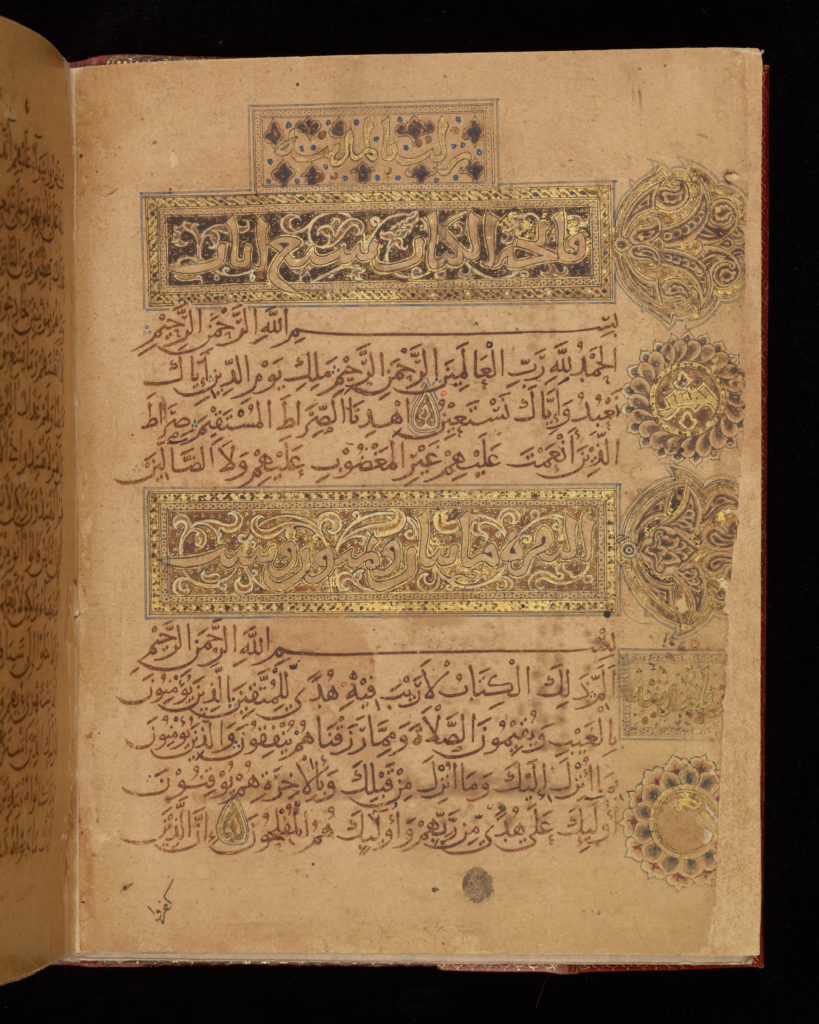 نزلت بالمدينة
فاتحة الكتاب سبع ايات
بِسْمِ اللَّهِ الرَّحْمَنِ الرَّحِيْمِ
الْحَمْدُ لِلَّهِ رَبِّ الْعَالَمِيْنَ الرَّحْمَنِ الرَّحِيْمِ مَلِكِ يَوْمِ الدِّيْنِ إِيَّاكَ
نَعْبُدُ وَإِيَّاكَ نَسْتَعِيْنُ اِهْدِنَا الصِّرَاطَ الْمُسْتَقِيْمَ صِرَاطَ
الَّذِيْنَ أَنْعَمْتَ عَلَيْهِمْ غَيْرِ الْمَغْضُوْبِ عَلَيْهِمْ وَلَا الضَّالِّيْنَ
البقرة مايتان وثمنون وست
بِسْمِ اللَّهِ الرَّحْمَنِ الرَّحِيْمِ
الم ذَلِكَ الْكِتَابُ لَا رَيْبَ فِيْهِ هُدًى لِلْمُتَّقِيْنَ الَّذِيْنَ يُؤْمِنُوْنَ
بِالْغَيْبِ وَيُقِيْمُوْنَ الصَّلَاةَ وَمِمَّا رَزَقْنَاهُمْ يُنْفِقُوْنَ وَالَّذِيْنَ يُؤْمِنُوْنَ
بِمَا أُنْزِلَ إِلَيْكَ وَمَا أُنْزِلَ مِنْ قَبْلِكَ وَبِالْآخِرَةِ هُمْ يُوْقِنُوْنَ
أُولَئِكَ عَلَى هُدًى مِنْ رَبِّهِمْ وَأُولَئِكَ هُمُ الْمُفْلِحُوْنَ إِنَّ الَّذِيْنَ
كفروا